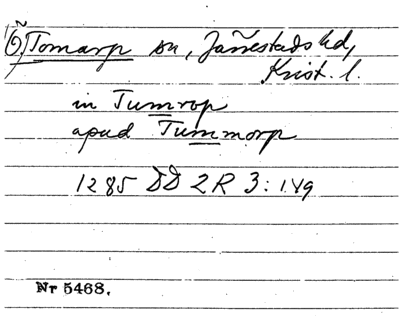 (Ö) Tomarp sn, Järrestads hd,
Krist. l.
in Tumrop
apud Tummorp
1285 DD 2R 3: 149
Nr 5468.